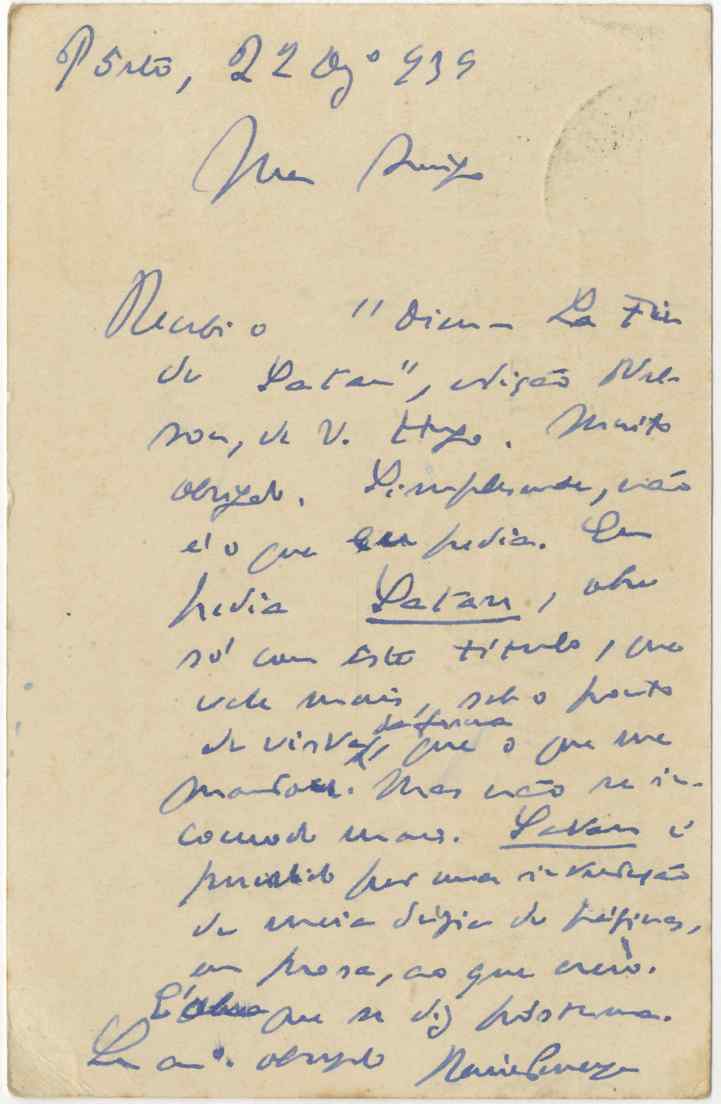 Pôrto, 22 Dezº 939
Meu Amigo
Recebi o "Dieu - La Fin
de Satan", edição Nel-
son, de V. Hugo. Muito
obrigado. Simplesmente, não
é o que eu pedia. Eu
pedia Satan, obra
só com êste título, que
vale mais, sob o ponto
de vista da forma, que o que me
mandou. Mas não se in-
comode mais. Satan é
precedido por uma introdução
de meia dúzia de páginas,
em prosa, ao que creio.
É obra que se diz póstuma.
Seu amº. obrigado